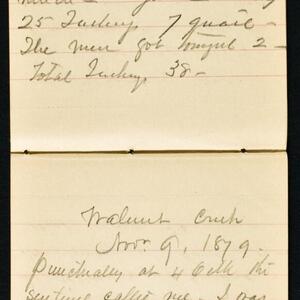 25 Turkey 7 quail -
The men got tonight 2 -
Total Turkeys 38 -
Walnut Creek
Nov. 9, 1879.
Punctually at 4 Oclk the
sentinel called me. I was